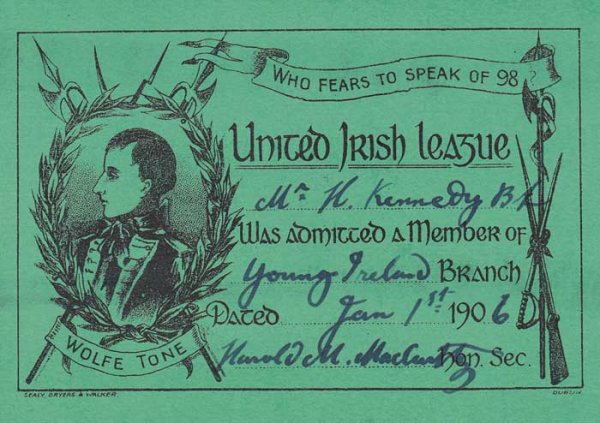 WHO FEARS TO SPEAK OF 98?
United Irish League
Mr. H. Kennedy B.L.
Was admitted a Member of
Young Ireland Branch
Dated Jan 1st 1906
Harold M. Hon. Sec.
WOLFE TONE
SEALY, BRYERS & WALKER.
DUBLIN.